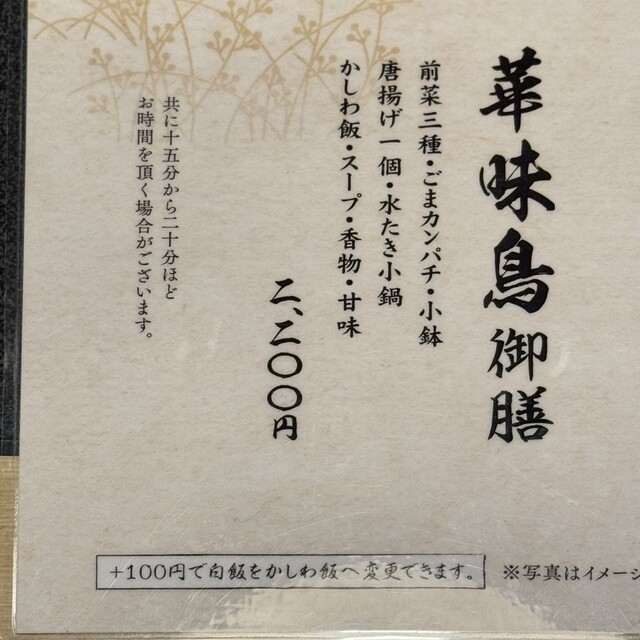 華味鳥御膳
前菜三種・ごまカンパチ・小鉢
唐揚げ一個・水たき小鍋
かしわ飯・スープ・香物・甘味
二、二〇〇円
共に十五分から二十分ほど
お時間を頂く場合がございます。
+100円で白飯をかしわ飯へ変更できます。
※写真はイメージ